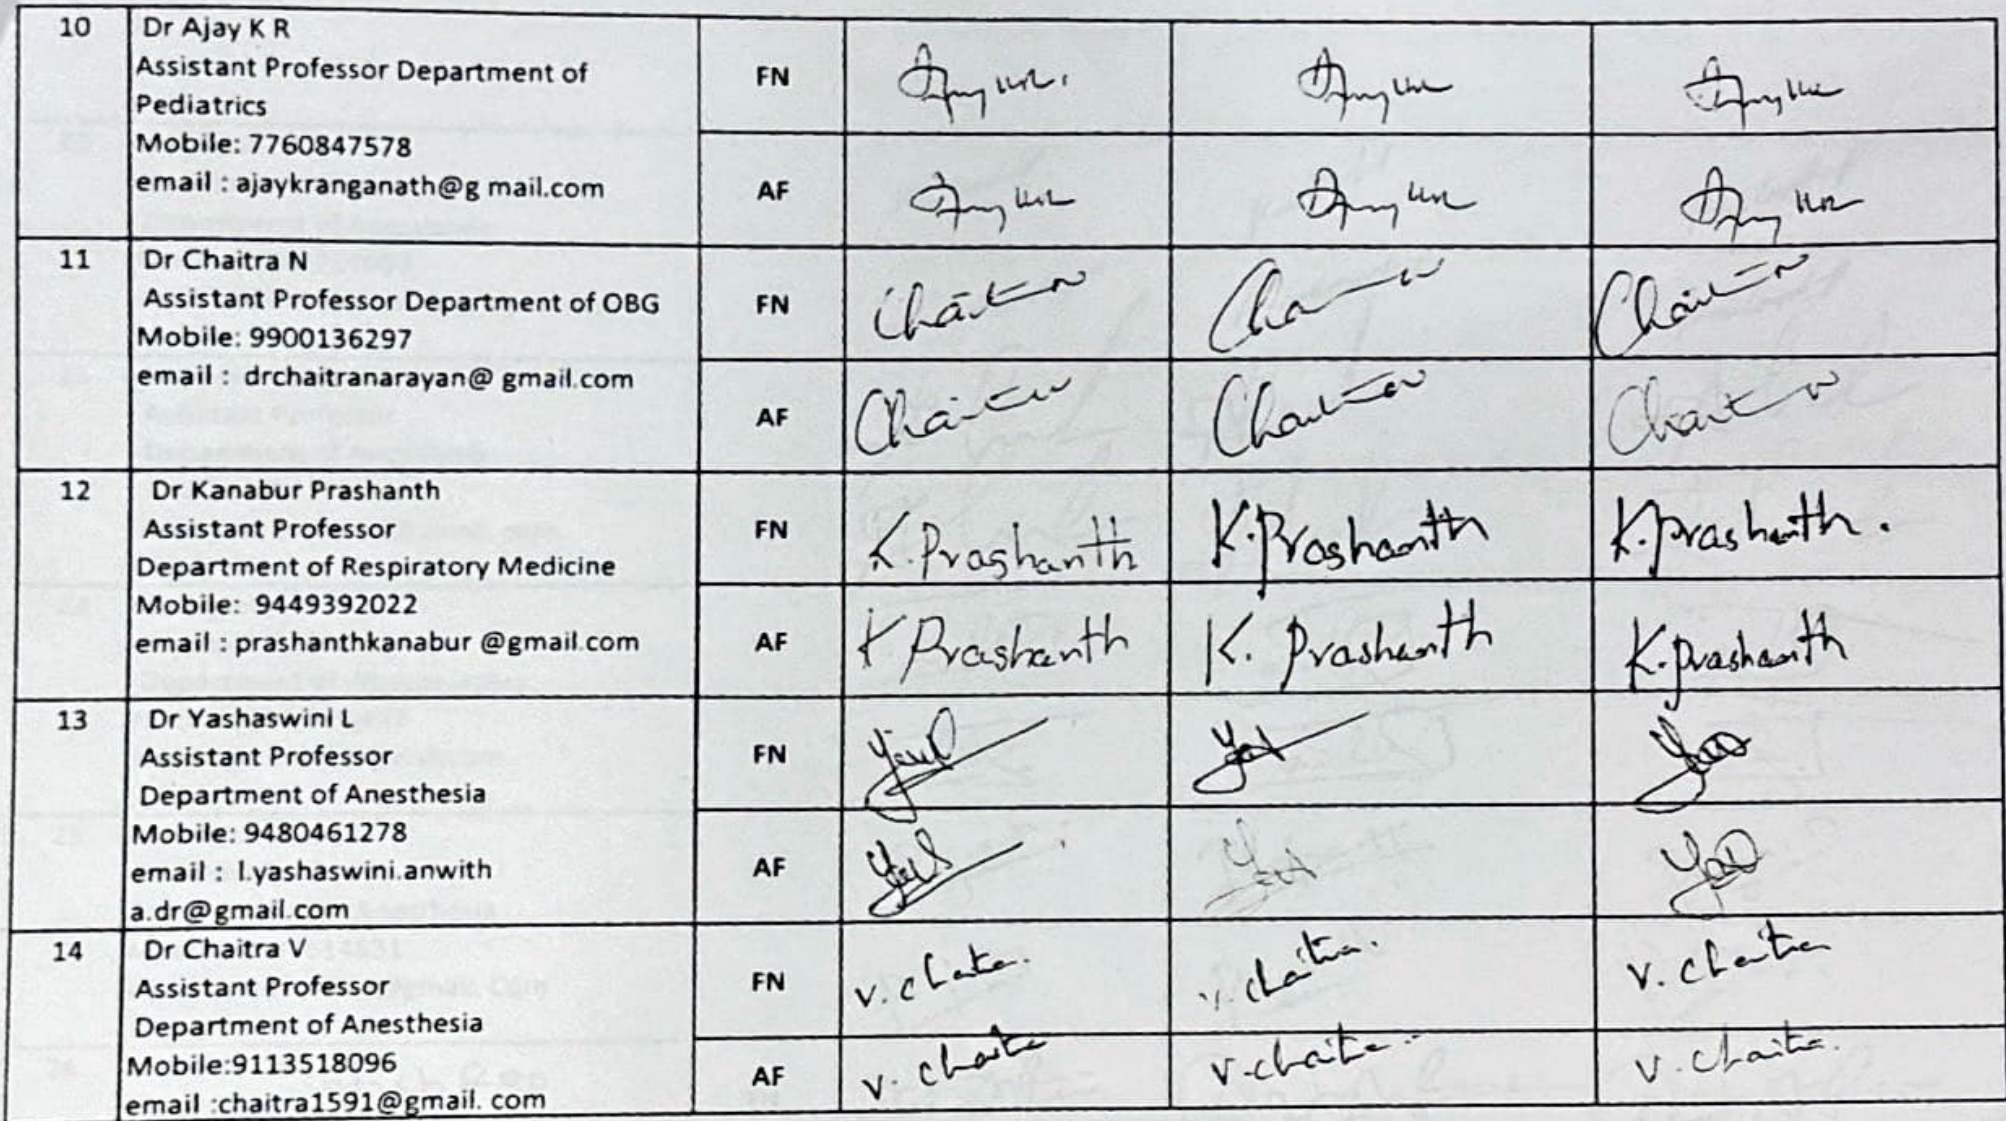 10 Dr Ajay K R
Assistant Professor Department of
Pediatrics
Mobile: 7760847578
email : ajaykranganath@g mail.com
FN
AF
11 Dr Chaitra N
Assistant Professor Department of OBG
Mobile: 9900136297
email : drchaitranarayan@ gmail.com
FN
AF
12 Dr Kanabur Prashanth
Assistant Professor
Department of Respiratory Medicine
Mobile: 9449392022
email : prashanthkanabur @gmail.com
FN K.Prashanth K.Prashanth K.Prashanth.
AF K Prashanth K. Prashanth K.Prashanth
13 Dr Yashaswini L
Assistant Professor
Department of Anesthesia
Mobile: 9480461278
email : l.yashaswini.anwith
a.dr@gmail.com
FN
AF
14 Dr Chaitra V
Assistant Professor
Department of Anesthesia
Mobile:9113518096
email :chaitra1591@gmail. com
FN V. Chaitra. V. Chaitra. V. Chaitra
AF V. Chaitra V. Chaitra. V. Chaitra.